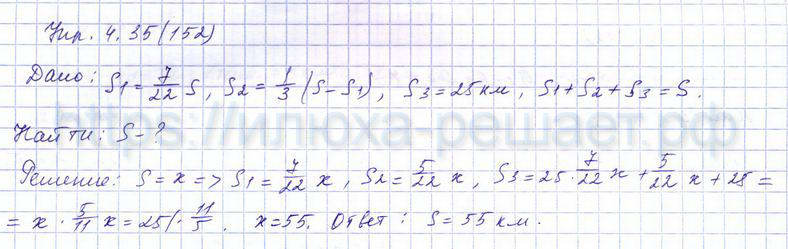 Упр. 4.35(152)
Дано: S1 = 7/22 S, S2 = 1/3 (S-S1), S3 = 25 км, S1 + S2 + S3 = S.
https://илюха-решает.рф
Найти: S - ?
Решение: S = x => S1 = 7/22 x, S2 = 5/22 x, S3 = 25 · 7/22 x + 5/22 x + 25 =
= x · 5/11 x = 25 | · 11/5. x = 55. Ответ: S = 55 км.